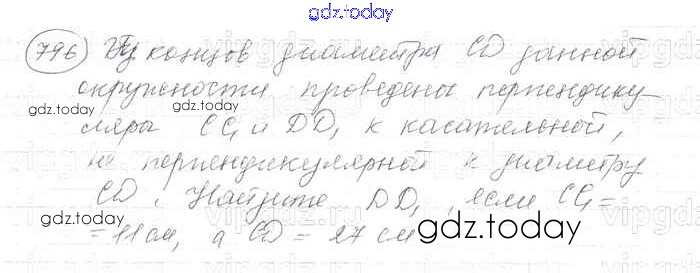 gdz.today
796 Из концов диаметра CD данной
окружности проведены перпендику-
ляры CC₁ и DD₁ к касательной,
не перпендикулярной к диаметру
CD. Найдите DD₁, если CC₁ =
= 11 см, а CD = 27 см
gdz.today
gdz.today
gdz.today
gdz.today